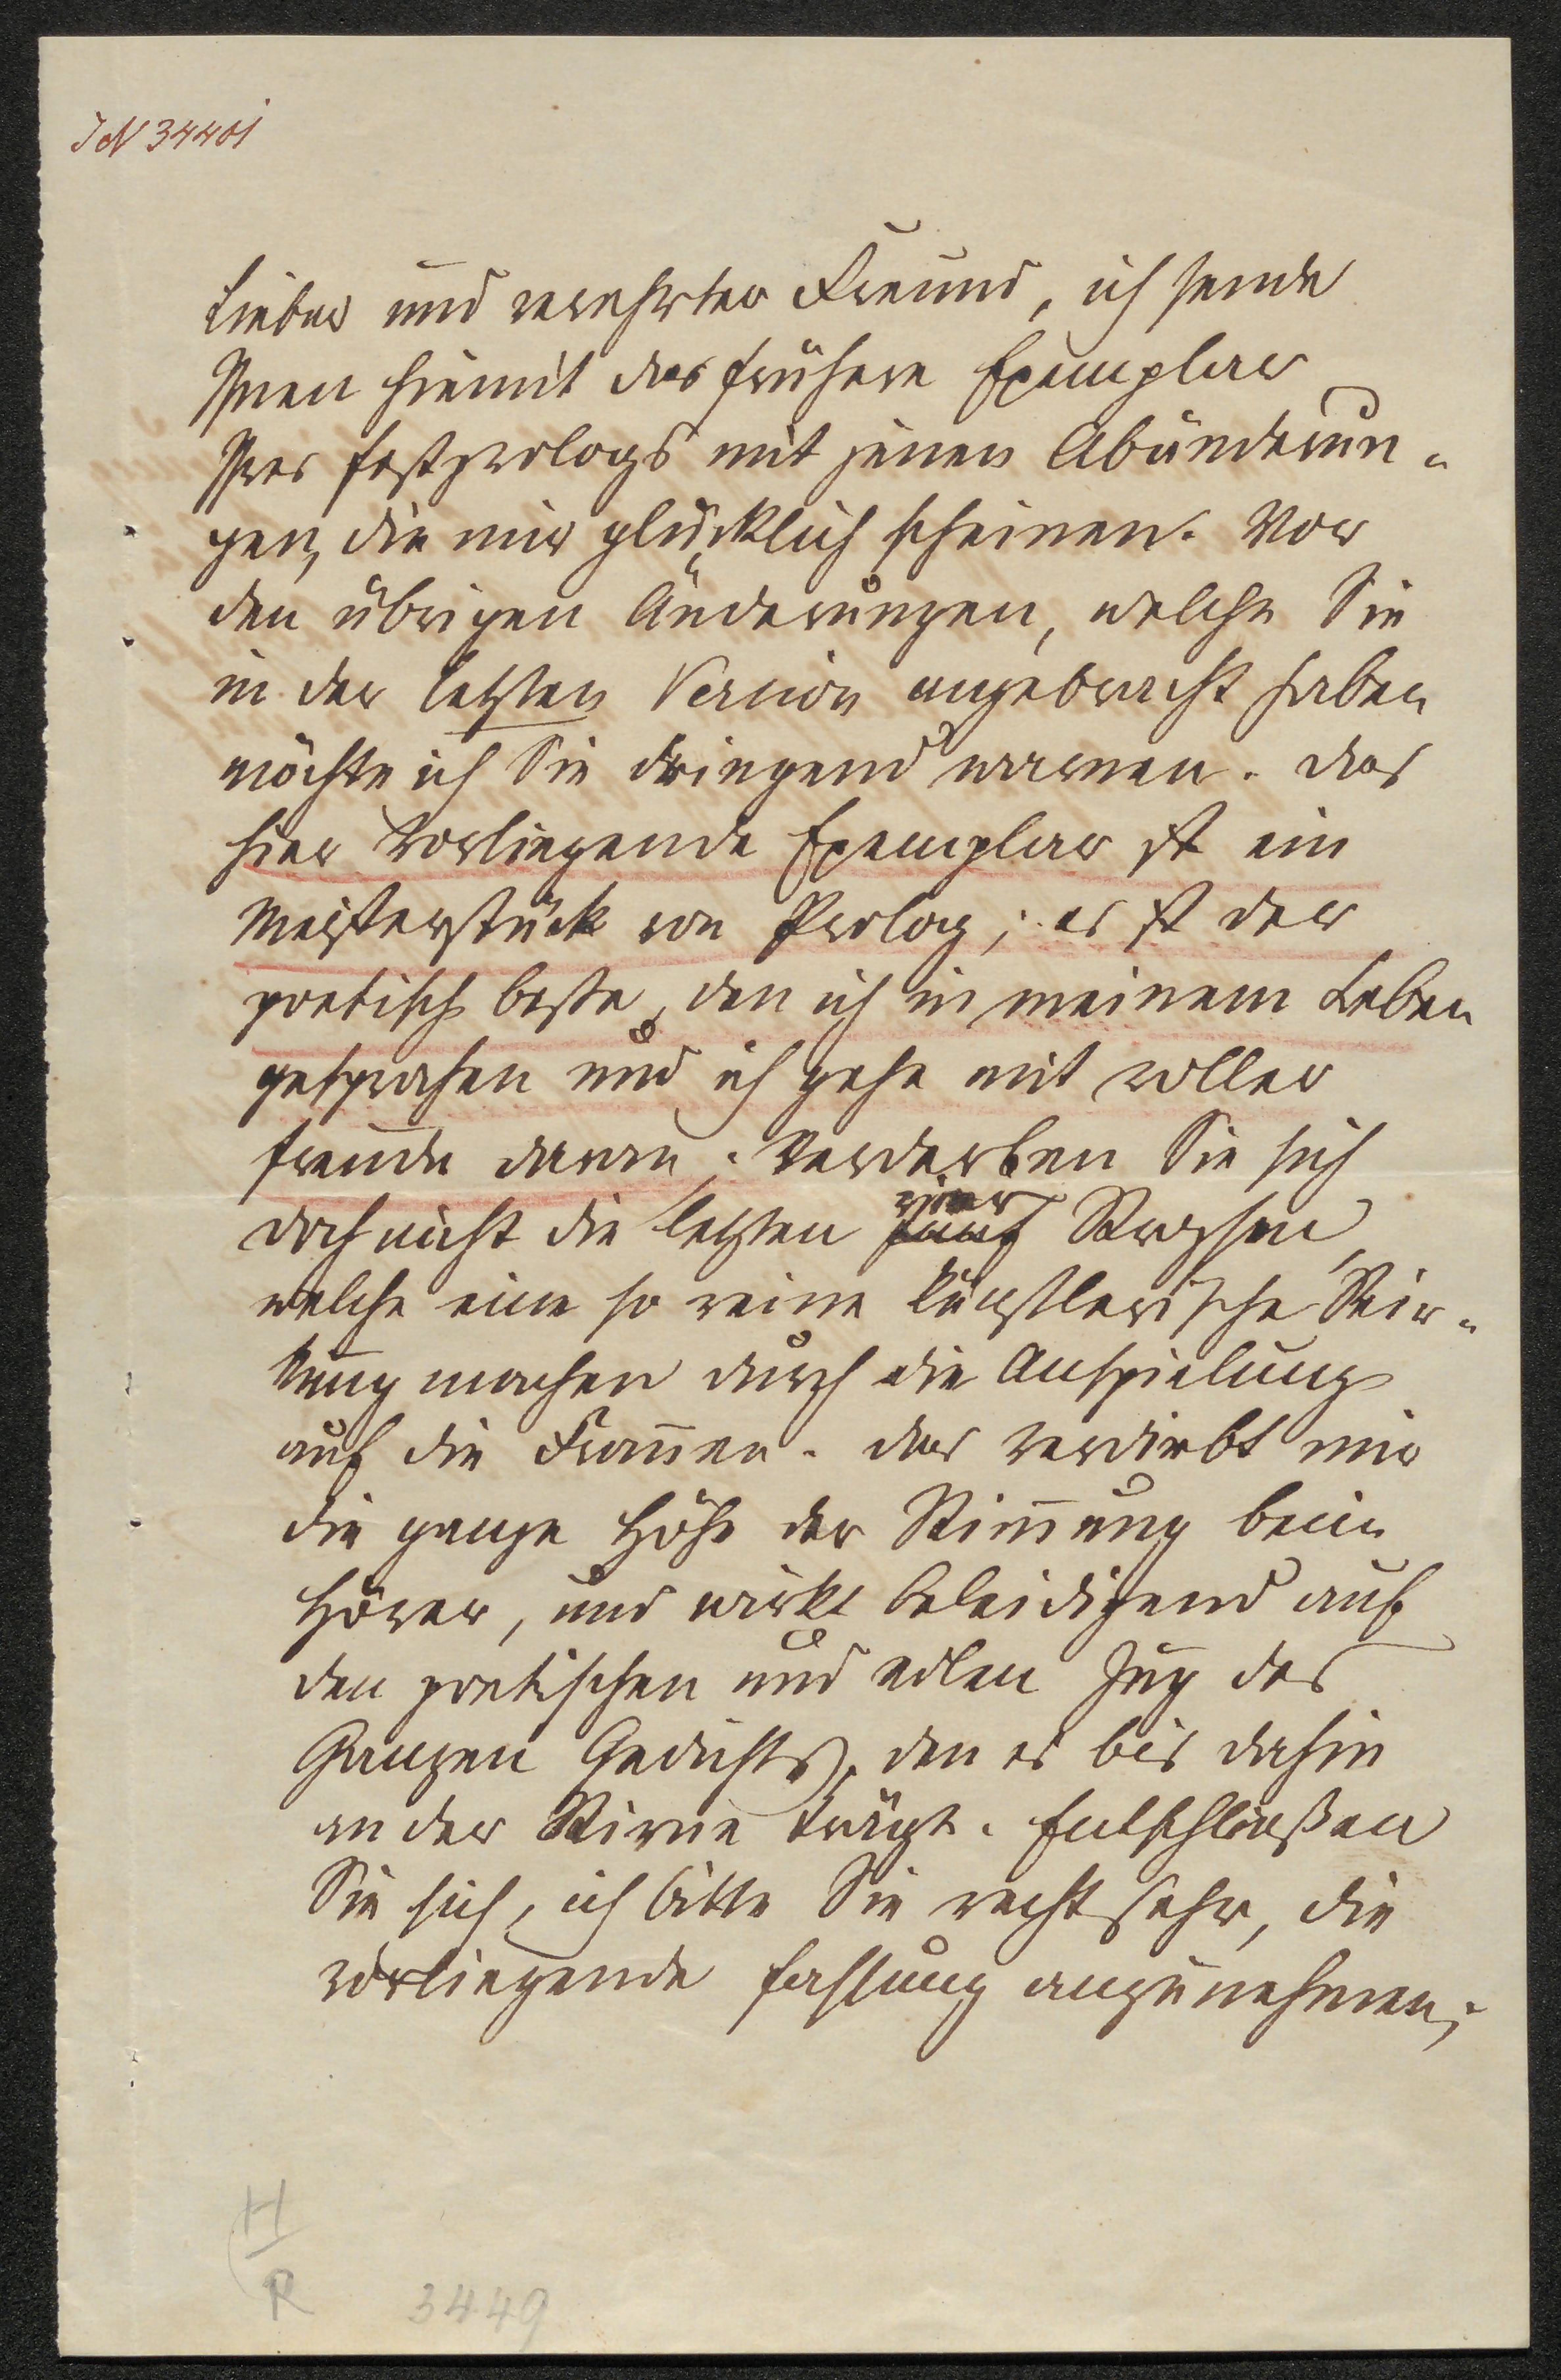 IN 34401
Lieber und verehrter Freund, ich sende
Ihnen hiemit das frühere Exemplar
Ihres Festprologs mit jenen Abänderun-
gen, die mir glücklich scheinen. Vor
den übrigen Änderungen, welche Sie
in der letzten Version angebracht haben
möchte ich Sie dringend warnen. Das
hier vorliegende Exemplar ist ein
Meisterstück von Prolog; es ist der
poetisch beste, den ich in meinem Leben
gesprochen und ich gehe mit voller
Freude daran. Verderben Sie sich
doch nicht die letzten fünf vier Strophen,
welche eine so reine künstlerische Wir-
kung machen durch die Anspielung
auf die Frauen. Das verdirbt mir
die ganze Höhe der Stim̄ung beim
Hörer, und wirkt beleidigend auf
den poetischen und edlen Zug des
Ganzen Gedichts, den es bis dahin
an der Stirne trägt. Entschließen
Sie sich, ich bitte Sie recht sehr, die
vorliegende Fassung anzunehmen;
H
R
3449